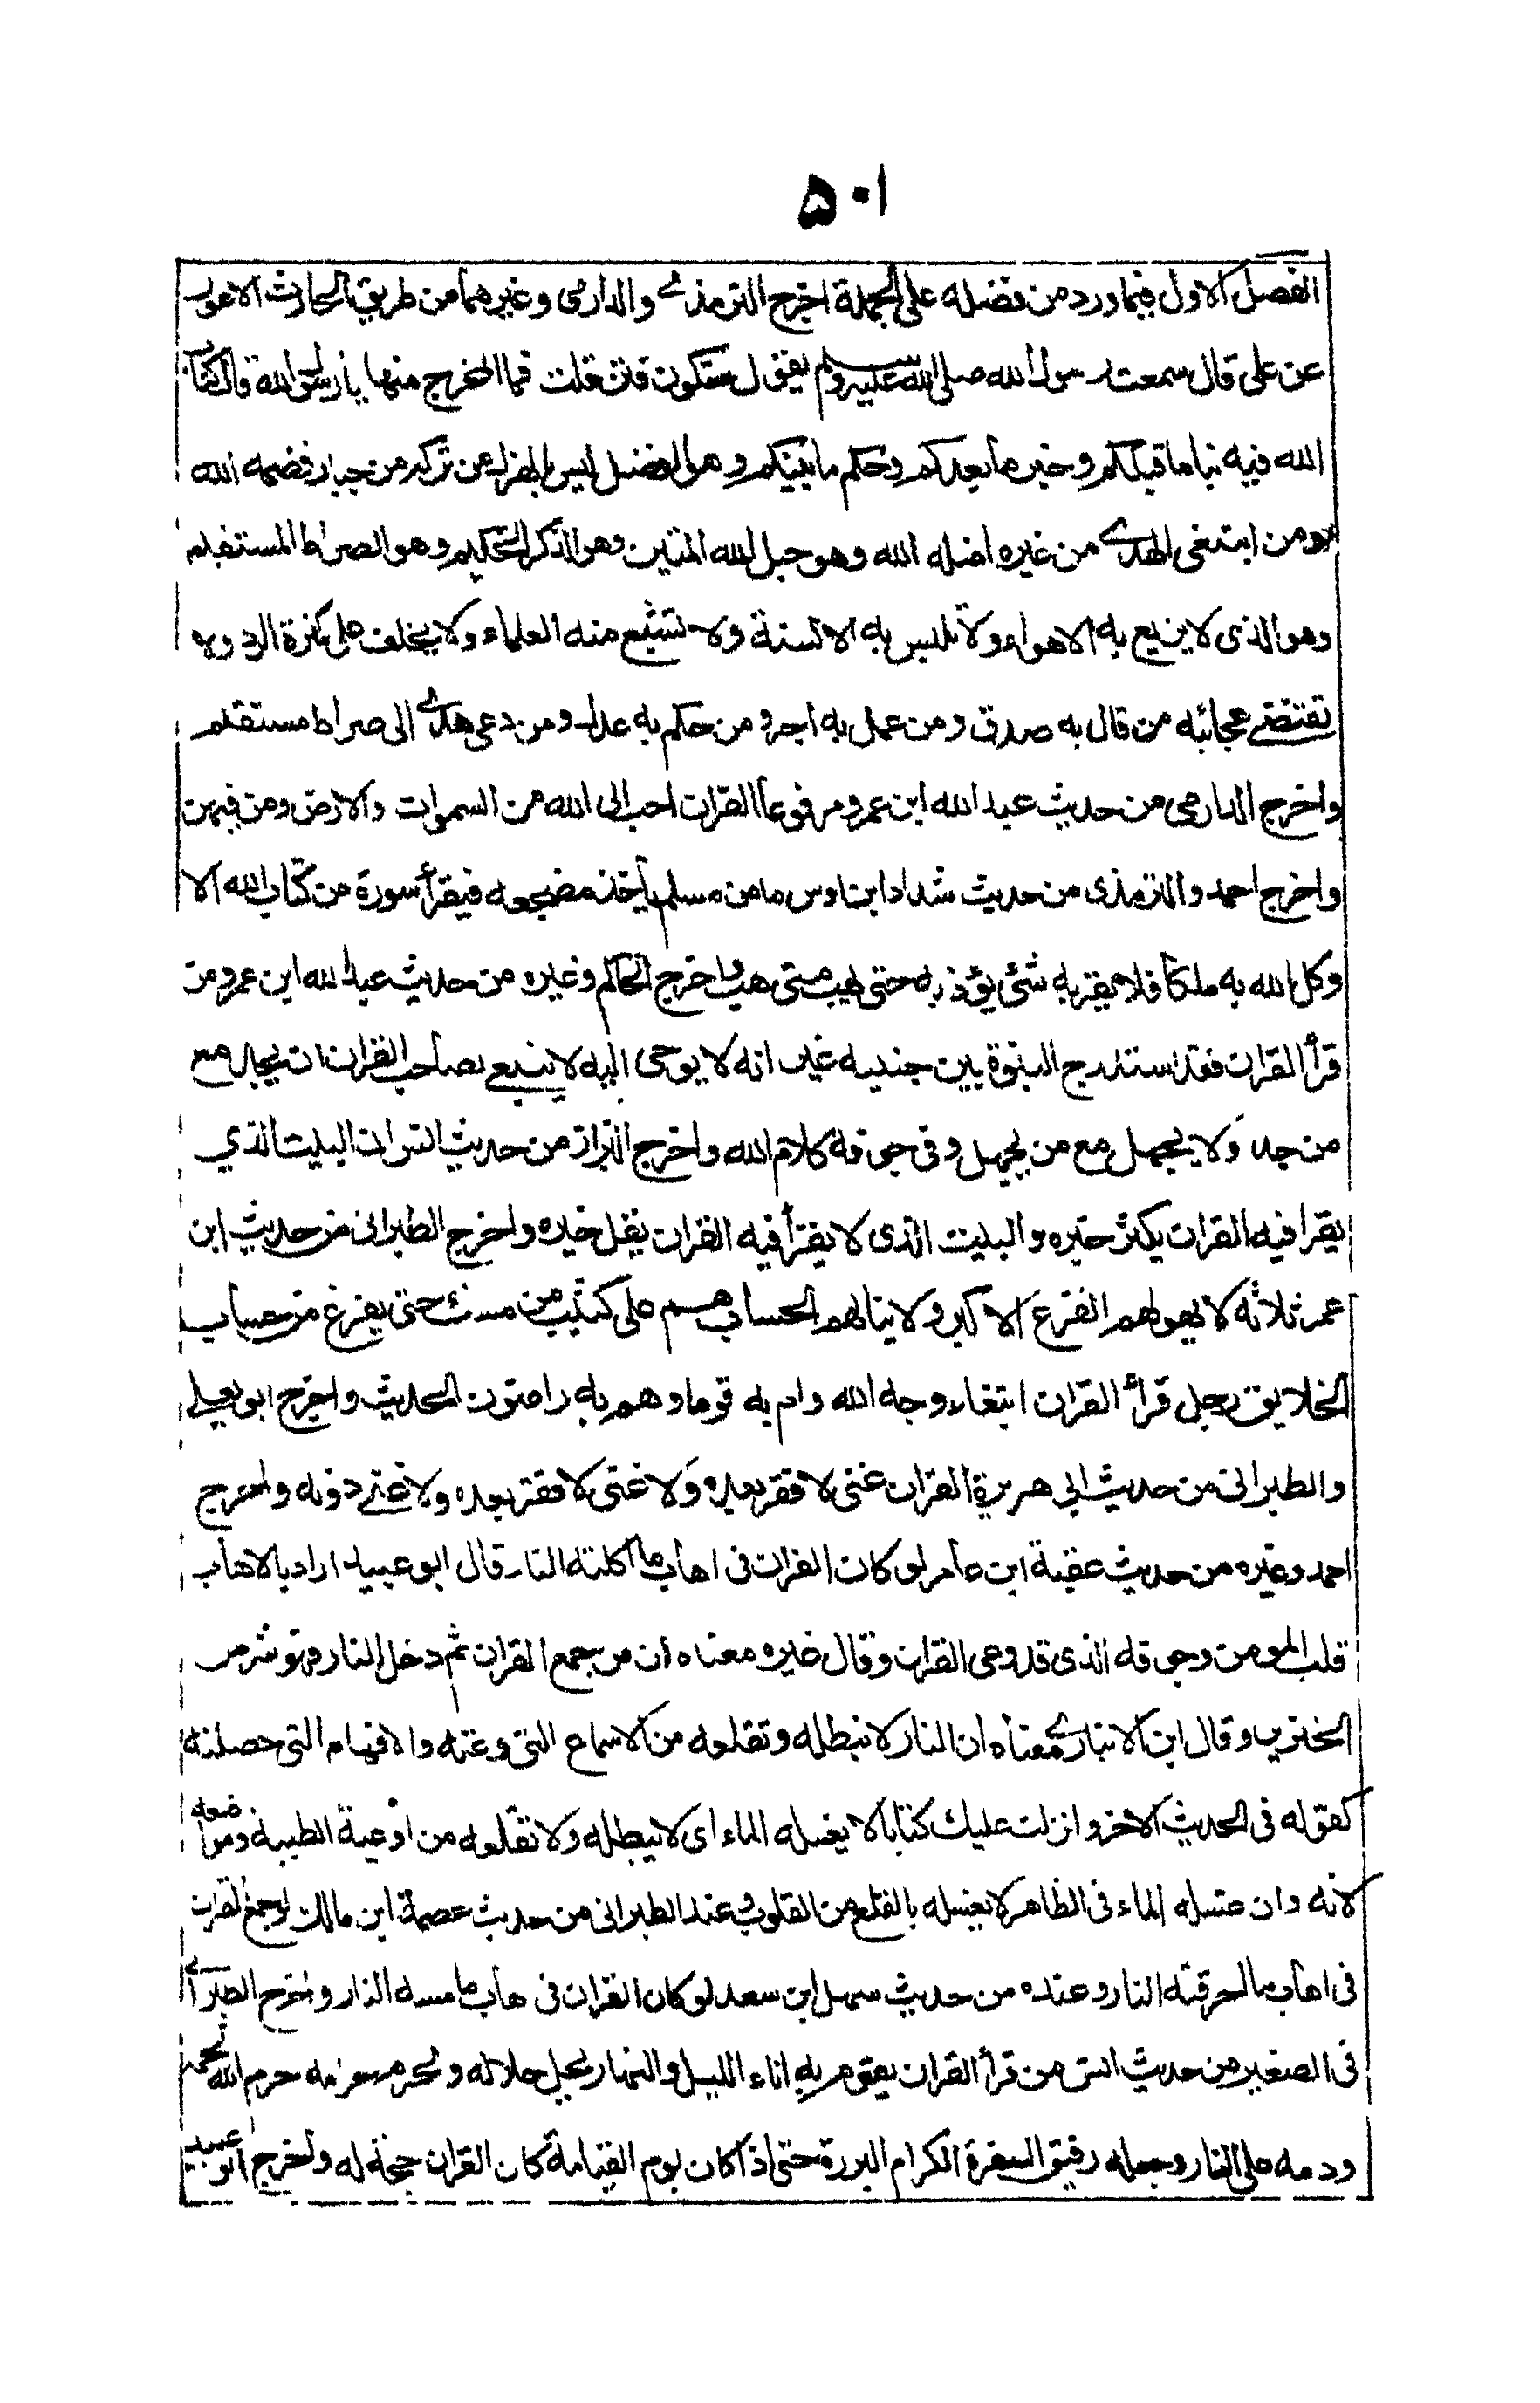 ۵۰۱
الفصل الاول فیما ورد من فضله علی الجملة اخرج الترمذے والدارمی وغیرهما من طریق الحارث الاعور
عن علی قال سمعت رسول الله صلی الله علیه وسلم یقول ستکون فتن قلت فما المخرج منها یا رسول الله قال کتاب
الله فیه نبا ما قبلکم وخبر ما بعدکم وحکم ما بینکم وهو الفضل لیس بالهزل من ترکه من جبار قصمه الله
ومن ابتغی الهدے من غیره اضله الله وهو حبل الله المتین وهو الذکر الحکیم وهو الصراط المستقیم
وهو الذی لا یزیع به الاهواء ولا تلتبس به الالسنة ولا تشبع منه العلماء ولا یخلف علی کثرة الرد ولا
تنقضے عجائبه من قال به صدق ومن عمل به اجر ومن حکم به عدل ومن دعی هدے الی صراط مستقیم
واخرج الدارمی من حدیث عبد الله ابن عمرو مرفوعا القران احب الی الله من السموات والارض ومن فیهن
واخرج احمد والترمذی من حدیث شداد ابن اوس ما من مسلم یأخذ مضجعه فیقرأ سورة من کتاب الله الا
وکل الله به ملکا فلا یقربه شئ یؤذیه حتی یهب متی هب واخرج الحاکم وغیره من حدیث عبد الله ابن عمرو من
قرأ القران فقد استدرج النبوة بین جنبیه غیر انه لا یوحی الیه لا ینبغے لصاحب القران ان یجد مع
من جد ولا یجهل مع من یجهل وفی جوفه کلام الله واخرج البزار من حدیث انس ان البیت الذی
یقرا فیه القران یکثر خیره والبیت الذی لا یقرأ فیه القران یقل خیره واخرج الطبرانی من حدیث ابن
عمر ثلاثه لا یهولهم الفزع الاکبر ولا ینالهم الحساب هم علی کثیب من مسک حتی یفرغ من حساب
الخلایق رجل قرأ القران ابتغاء وجه الله وام به قوما وهم به راضون الحدیث واخرج ابو یعلی
والطبرانی من حدیث ابی هریرة القران غنی لا فقر بعده ولا غنی لا فقر بعده ولا غنے دونه واخرج
احمد وغیره من حدیث عقبة ابن عامر لو کان القران فی اهاب ما اکلته النار قال ابو عبید اراد بالاهاب
قلب المومن وجوفه الذی قد وعی القران وقال غیره معناه ان من جمع القران ثم دخل النار فهو شر من
الخنزیر وقال ابن الانبارے معناه ان النار لا تبطله وتقلعه من الاسماع التی وعته والافهام التی حصلته
کقوله فی الحدیث الاخر وانزلت علیک کتابا لا یغسله الماء ای لا یبطله ولا تقلعه من اوعیة الطیبة ومواضعه
لانه وان غسله الماء فی الظاهر لا یغسله بالقلع من القلوب وعند الطبرانی من حدیث عصمة ابن مالک لو جمع القران
فی اهاب ما احرقته النار وعنده من حدیث سهل ابن سعد لو کان القران فی هاب ما مسه النار واخرج الطبرانے
فی الصغیر من حدیث انس من قرأ القران یقوم به اناء اللیل والنهار یحل حلاله ویحرم حرامه حرم الله لحمه
ودمه علی النار وجعله رفیق السفرة الکرام البررة حتی اذا کان یوم القیامة کان القران حجة له واخرج ابو عبید